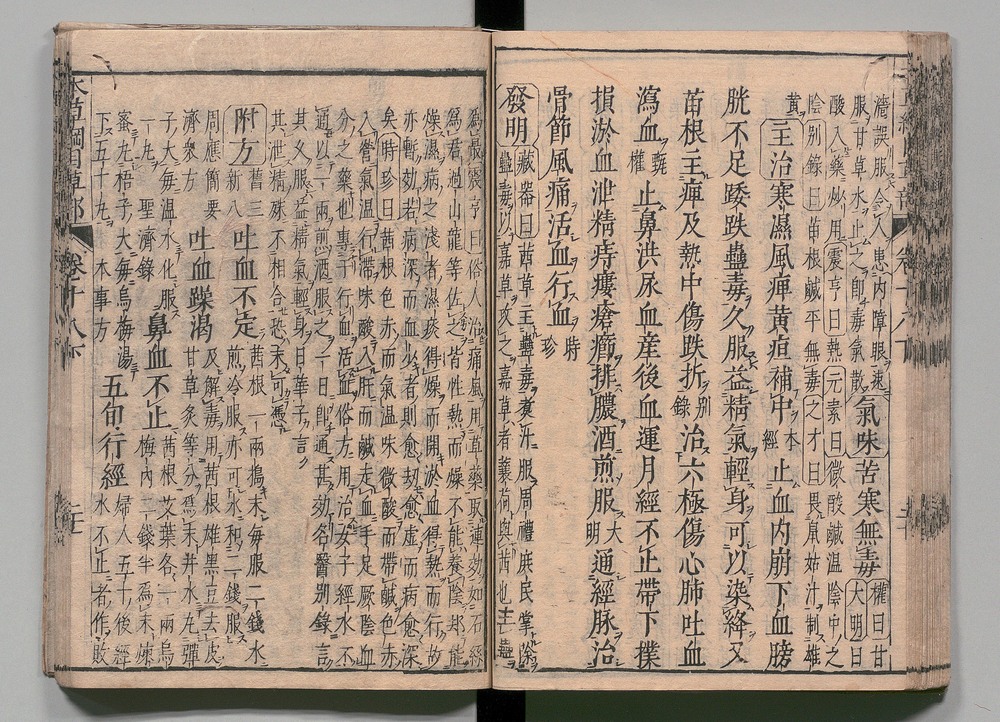 濇誤服令人患内障眼速
服甘草水止之即毒氣散氣味苦寒無毒權曰甘大明曰
酸入藥炒用震亨曰熱元素曰微酸鹹温陰中之
陰别録曰苗根鹹平無毒之才曰畏鼠姑汁制雄
黄主治寒濕風痺黄疸補中本經止血内崩下血膀
胱不足踒跌蠱毒久服益精氣輕身可以染絳又
苗根主痺及熱中傷跌折别録治六極傷心肺吐血
瀉血甄權止鼻洪尿血産後血運月經不止帶下撲
損淤血泄精痔瘻瘡癤排膿酒煎服大明通經脉治
骨節風痛活血行血時珍
發明藏器曰茜草主蠱毒煑汁服周禮庶民掌除
蠱毒以嘉草攻之嘉草者蘘荷與茜也主蠱
爲最震亨曰俗人治痛風用草藥取速効如石絲
爲君過山龍等佐之皆性熱而燥不能養陰却能
燥濕病之淺者濕痰得燥而開淤血得熱而行故
亦暫効若病深而血少者則愈劫愈虚而病愈深
矣時珍曰茜根色赤而氣温味微酸而帶鹹色赤
入營氣温行滯味酸入肝而鹹走血手足厥陰血
分之藥也專于行血活血俗方用治女子經水不
通以一兩煎酒服之一日即通甚効名醫别録言
其久服益精氣輕身日華子言
其泄精殊不相合恐未可憑
附方舊三新八吐血不定茜根一兩搗末毎服二錢水煎冷服亦可水和二錢服
周應簡要濟衆方吐血躁渇及解毒用茜根雄黒豆去皮甘草炙等分爲末井水丸彈
子大毎温水化服一丸聖濟録鼻血不止茜根艾葉各一兩烏梅肉二錢半爲末煉
蜜丸梧子大毎烏梅湯下五十丸本事方五旬行經婦人五十後經水不止者作敗
本草綱目草部 卷十八下